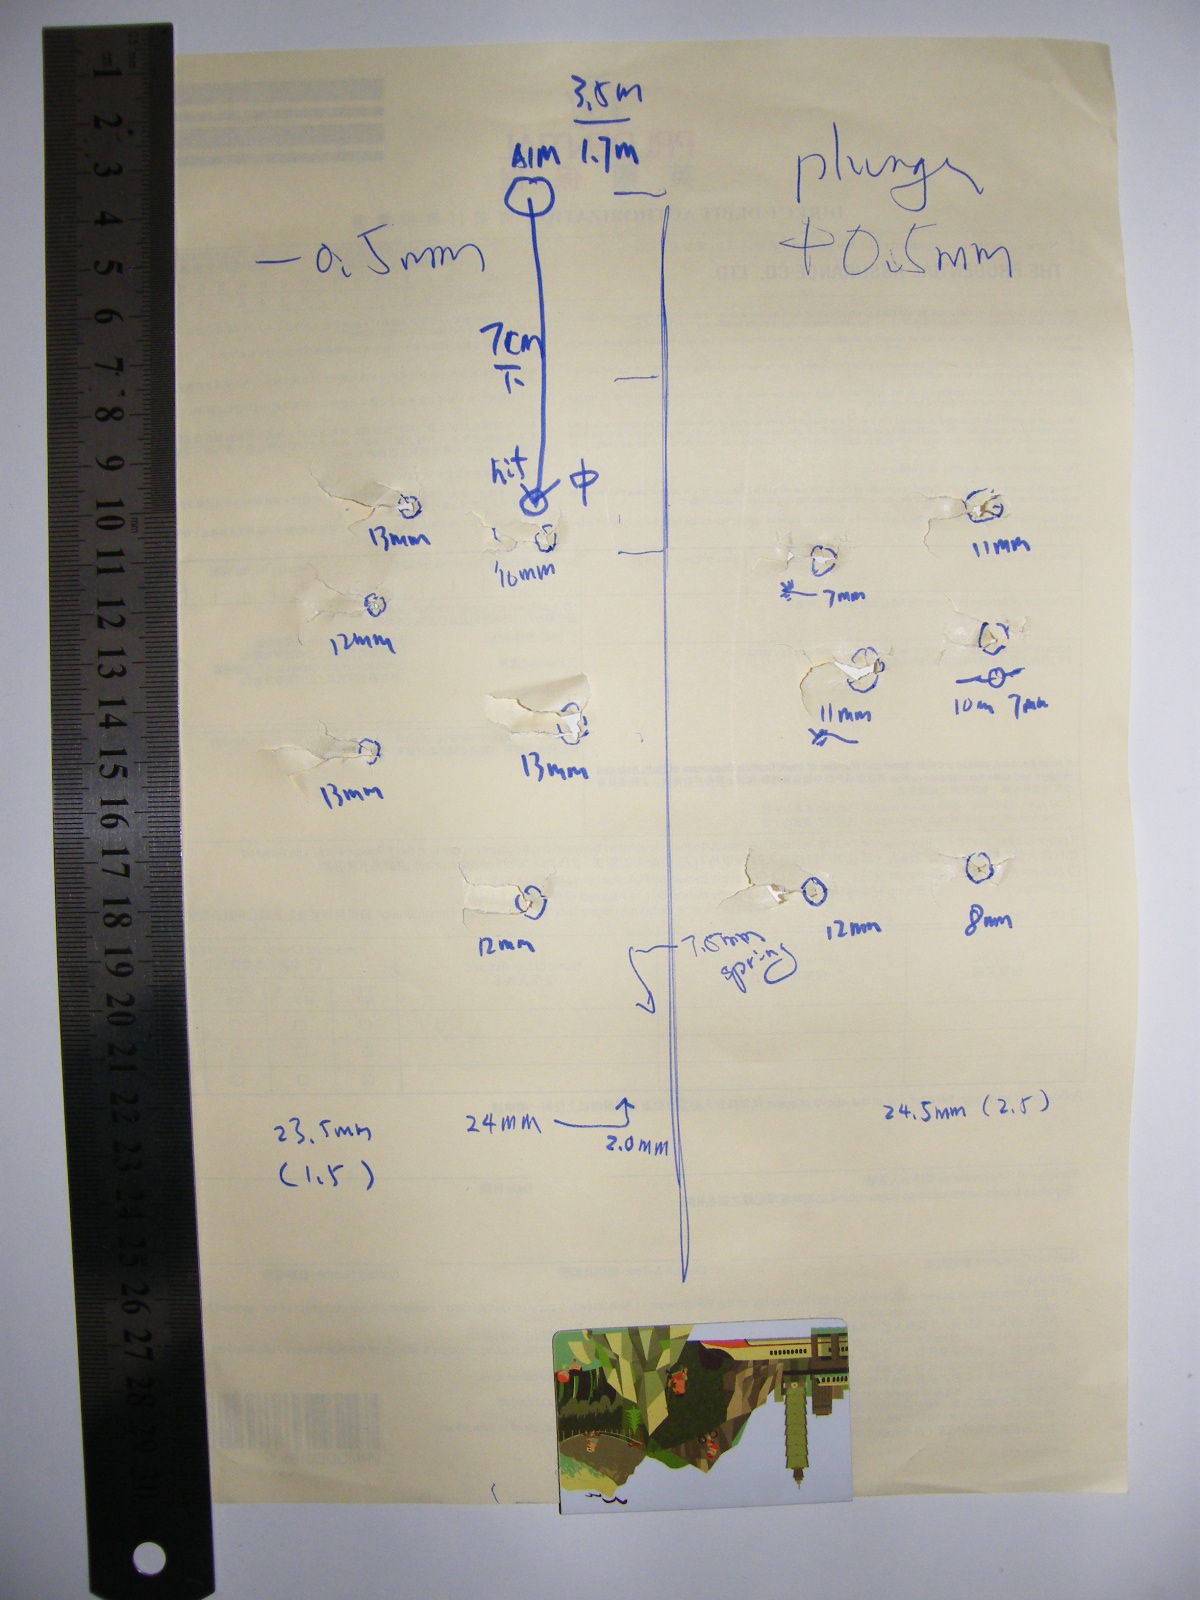 3.5m
AIM 1.7m
plunger
-0.5mm
+0.5mm
7cm
下
hit
中
13mm
10mm
11mm
7mm
12mm
11mm
10m 7mm
13mm
13mm
12mm
12mm
8mm
7.5mm
spring
24mm
2.0mm
23.5mm
(1.5)
24.5mm (2.5)
1
2
3
4
5
6
7
8
9
10
11
12
13
14
15
16
17
18
19
20
21
22
23
24
25
26
27
28
29
30